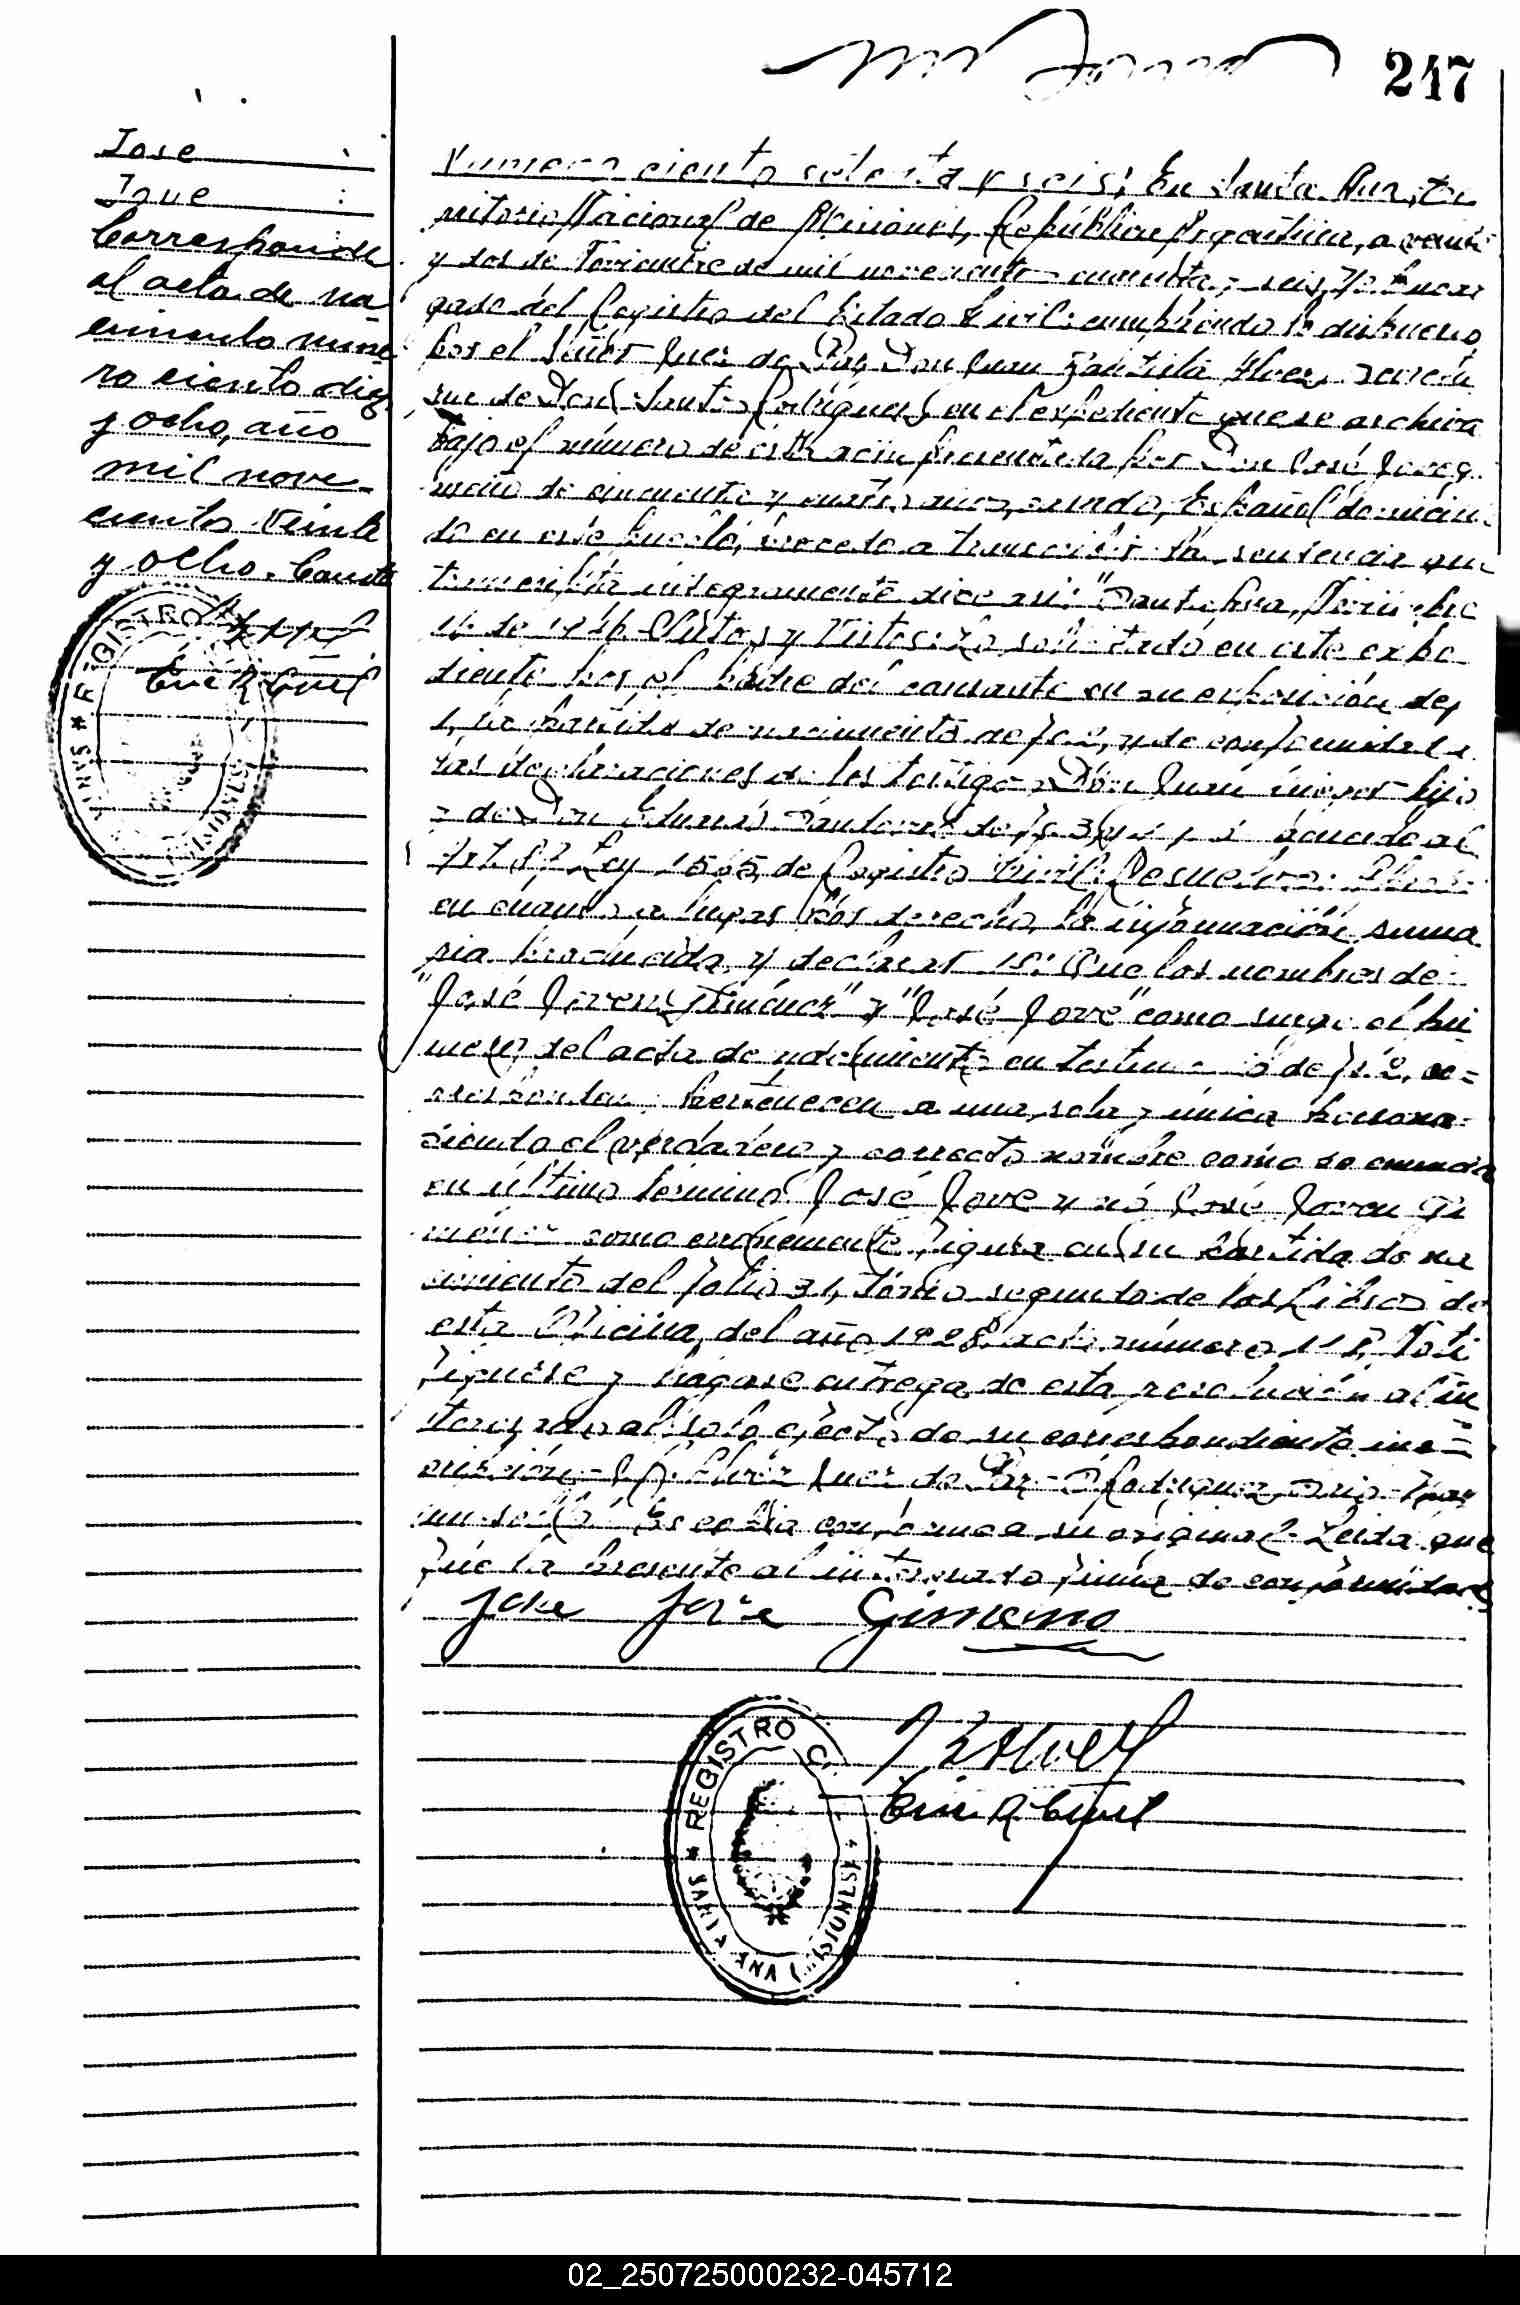 247
José
Jove
Corresponde
al acta de na
cimiento núme
ro ciento diez
y ocho, año
mil nove_
ciento veinte
y ocho. Conste
REGISTRO
SANTA ANA (MISIONES)
Número ciento setenta y seis: En Santa Ana, Te
rritorio Nacional de Misiones, República Argentina, a veinti
y dos de Noviembre de mil novecientos cuarenta y seis, Yo Encar
gado del Registro del Estado Civil: cumpliendo lo dispuesto
por el Señor Juez de Paz Don Juan Bautista Alvez, secreta
de Don Santos Rodríguez, en el expediente que se archiva
bajo el número de ésta acta presentada por Don José Jove G
meno de cincuenta y cuatro años, Español domicilia
do en este pueblo, procedo a transcribir la sentencia que
transcripta integramente dice así: "Santa Ana, Noviembre
de 1946. Autos y Vistos: Lo solicitado en este expe
diente por el padre del causante en su exposición de
1, la partida de nacimiento de fs. 2, y de conformidad a
las declaraciones de los testigos Don Juan hijo
y de Don de fs. 3 y de acuerdo al
Art. Ley 1565 de Registro Civil: Resuelvo: Aprobar
en cuanto a lugar por derecho, la información suma
ria producida, y declarar 1º: Que los nombres de
"José Joven Jiménez" y "José Jove" como surge el pri
mero, del acta de nacimiento en testimonio de fs. 2,
pertenecen a una sola y única persona
siendo el verdadero y correcto nombre como se enuncia
en último término José Jove y nó José Joven Ji
ménez como erróneamente figura en su partida de na
cimiento del folio 31, tomo segundo de los Libros de
esta Oficina, del año 1928 acta número 118. Noti
fíquese y hágase entrega de esta resolución al in
teresado al solo efecto de su correspondiente ins
cripción. Alvez Juez de Paz - S. Rodríguez Srio. Hay
un sello. Es copia conforme a su original. Leida que
fué la presente al interesado firma de conformidad
Jose Jove Gimeno
REGISTRO C.
SANTA ANA (MISIONES)
02_250725000232-045712